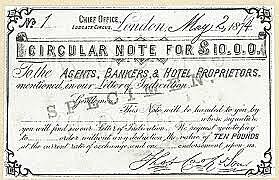 No. 1
CHIEF OFFICE,
LUDGATE CIRCUS,
London, May 2, 1874
CIRCULAR NOTE FOR £10.0.0.
To the AGENTS, BANKERS, & HOTEL PROPRIETORS,
mentioned in our Letter of Indication.
SPECIMEN
Gentlemen,
This Note will be handed to you by
whose signature
you will find in our Letter of Indication. We request you to pay
to order without any deduction the value of TEN POUNDS
at the current rate of exchange and on
Thos Cook & Son